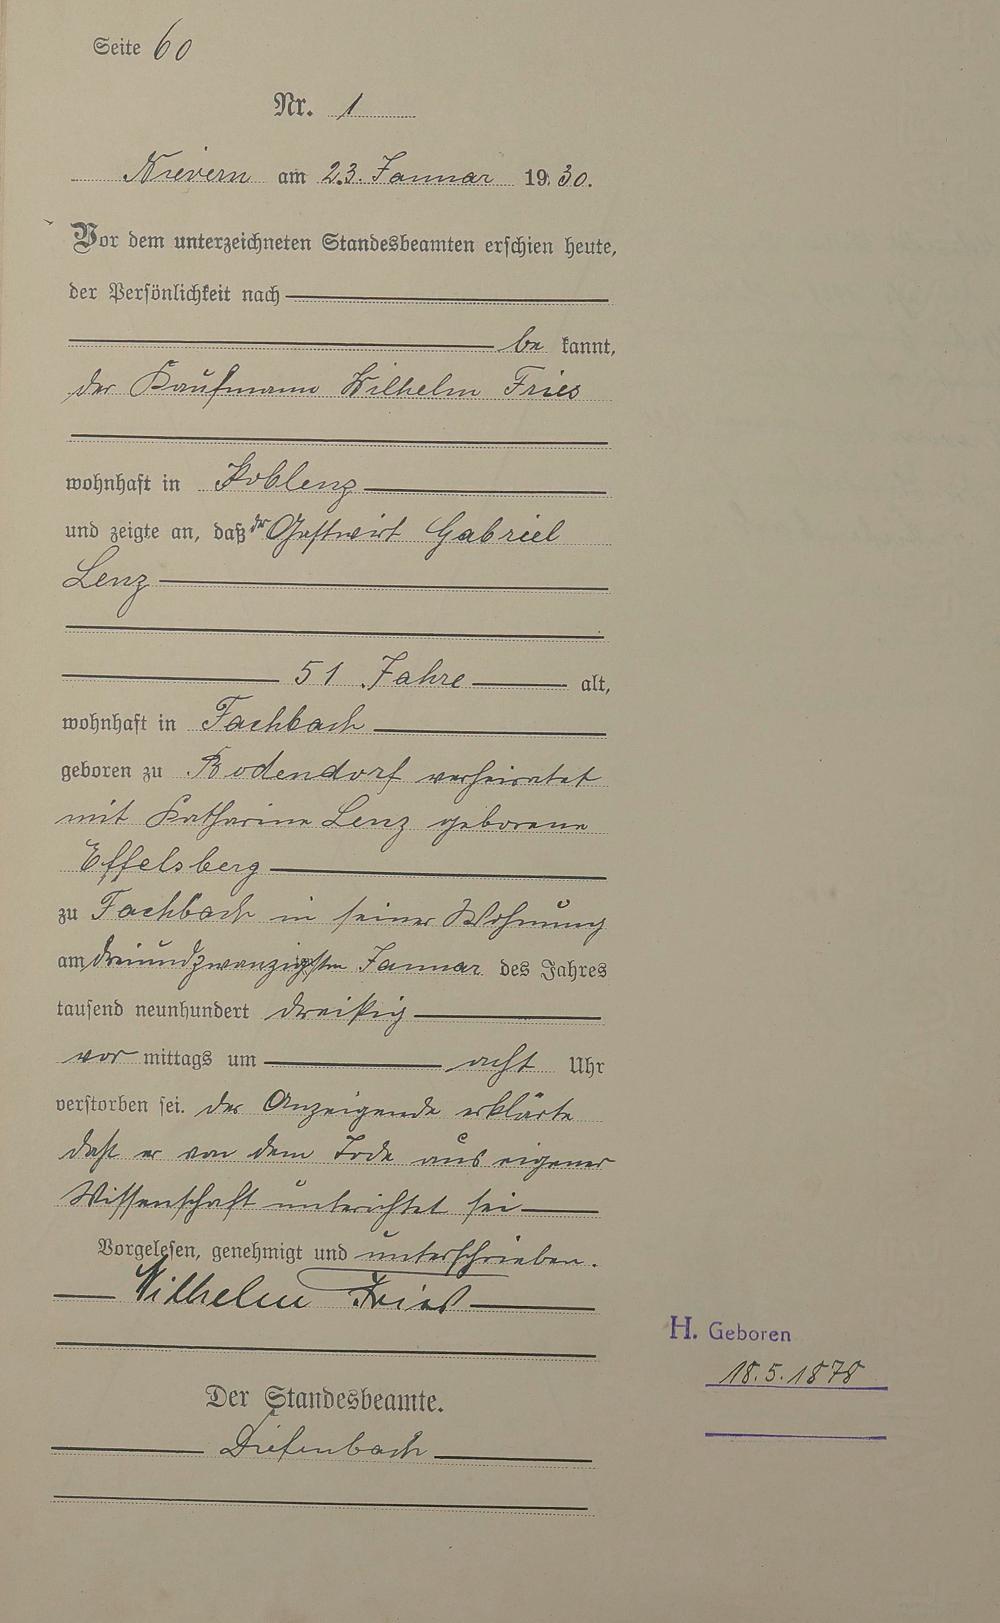 Seite 60
Nr. 1
Nievern am 23. Januar 1930.
Vor dem unterzeichneten Standesbeamten erschien heute,
der Persönlichkeit nach
be kannt,
der Kaufmann Wilhelm Fries
wohnhaft in Koblenz
und zeigte an, daß der Gastwirt Gabriel
Lenz
51 Jahre alt,
wohnhaft in Fachbach
geboren zu Bodendorf verheiratet
mit Katharina Lenz geborene
Effelsberg
zu Fachbach in seiner Wohnung
am dreiundzwanzigsten Januar des Jahres
tausend neunhundert dreißig
vor mittags um acht Uhr
verstorben sei. Der Anzeigende erklärte
daß er von dem Tode aus eigener
Wissenschaft unterichtet sei
Vorgelesen, genehmigt und unterschrieben.
Wilhelm Fries
H. Geboren
18.5.1878
Der Standesbeamte.
Diefenbach